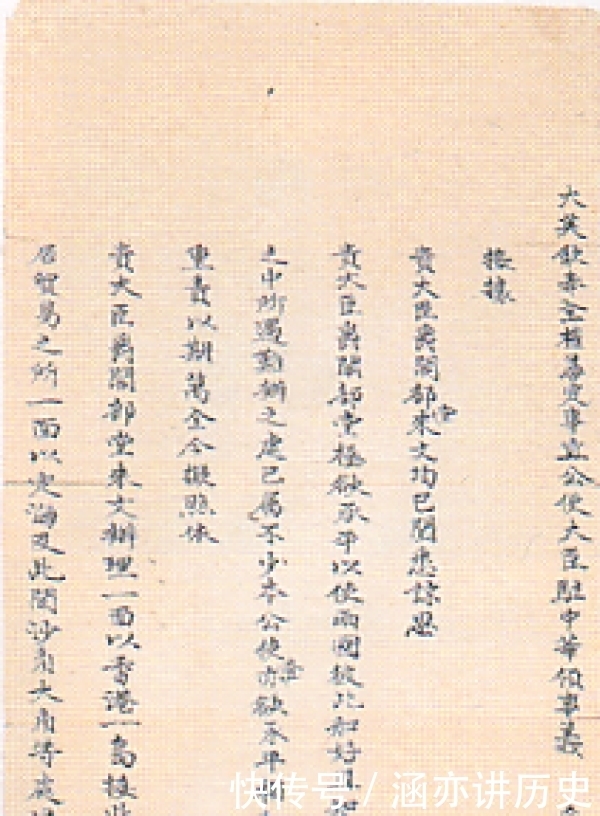 大英欽奉全權善定事宜公使大臣駐中華領事義
接據
貴大臣爵閣部堂來文均已閱悉諒思
貴大臣爵閣部堂極欲承平以使兩國彼此和好
之中所遇難辦之處已屬不少本公使亦欲承平
重責以期萬全今擬照依
貴大臣爵閣部堂來文辦理一面以香港一島接
居貿易之所一面以定海及此間沙角大角等處
快传号/涵亦讲历史